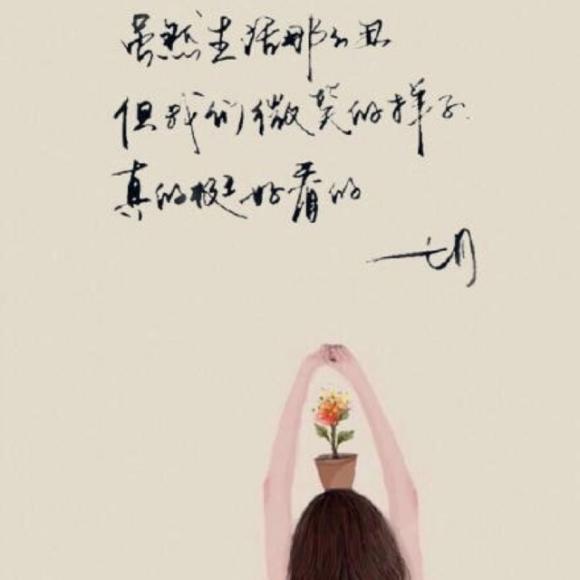 虽然生活那么丑
但我们微笑的样子
真的挺好看的
一七月